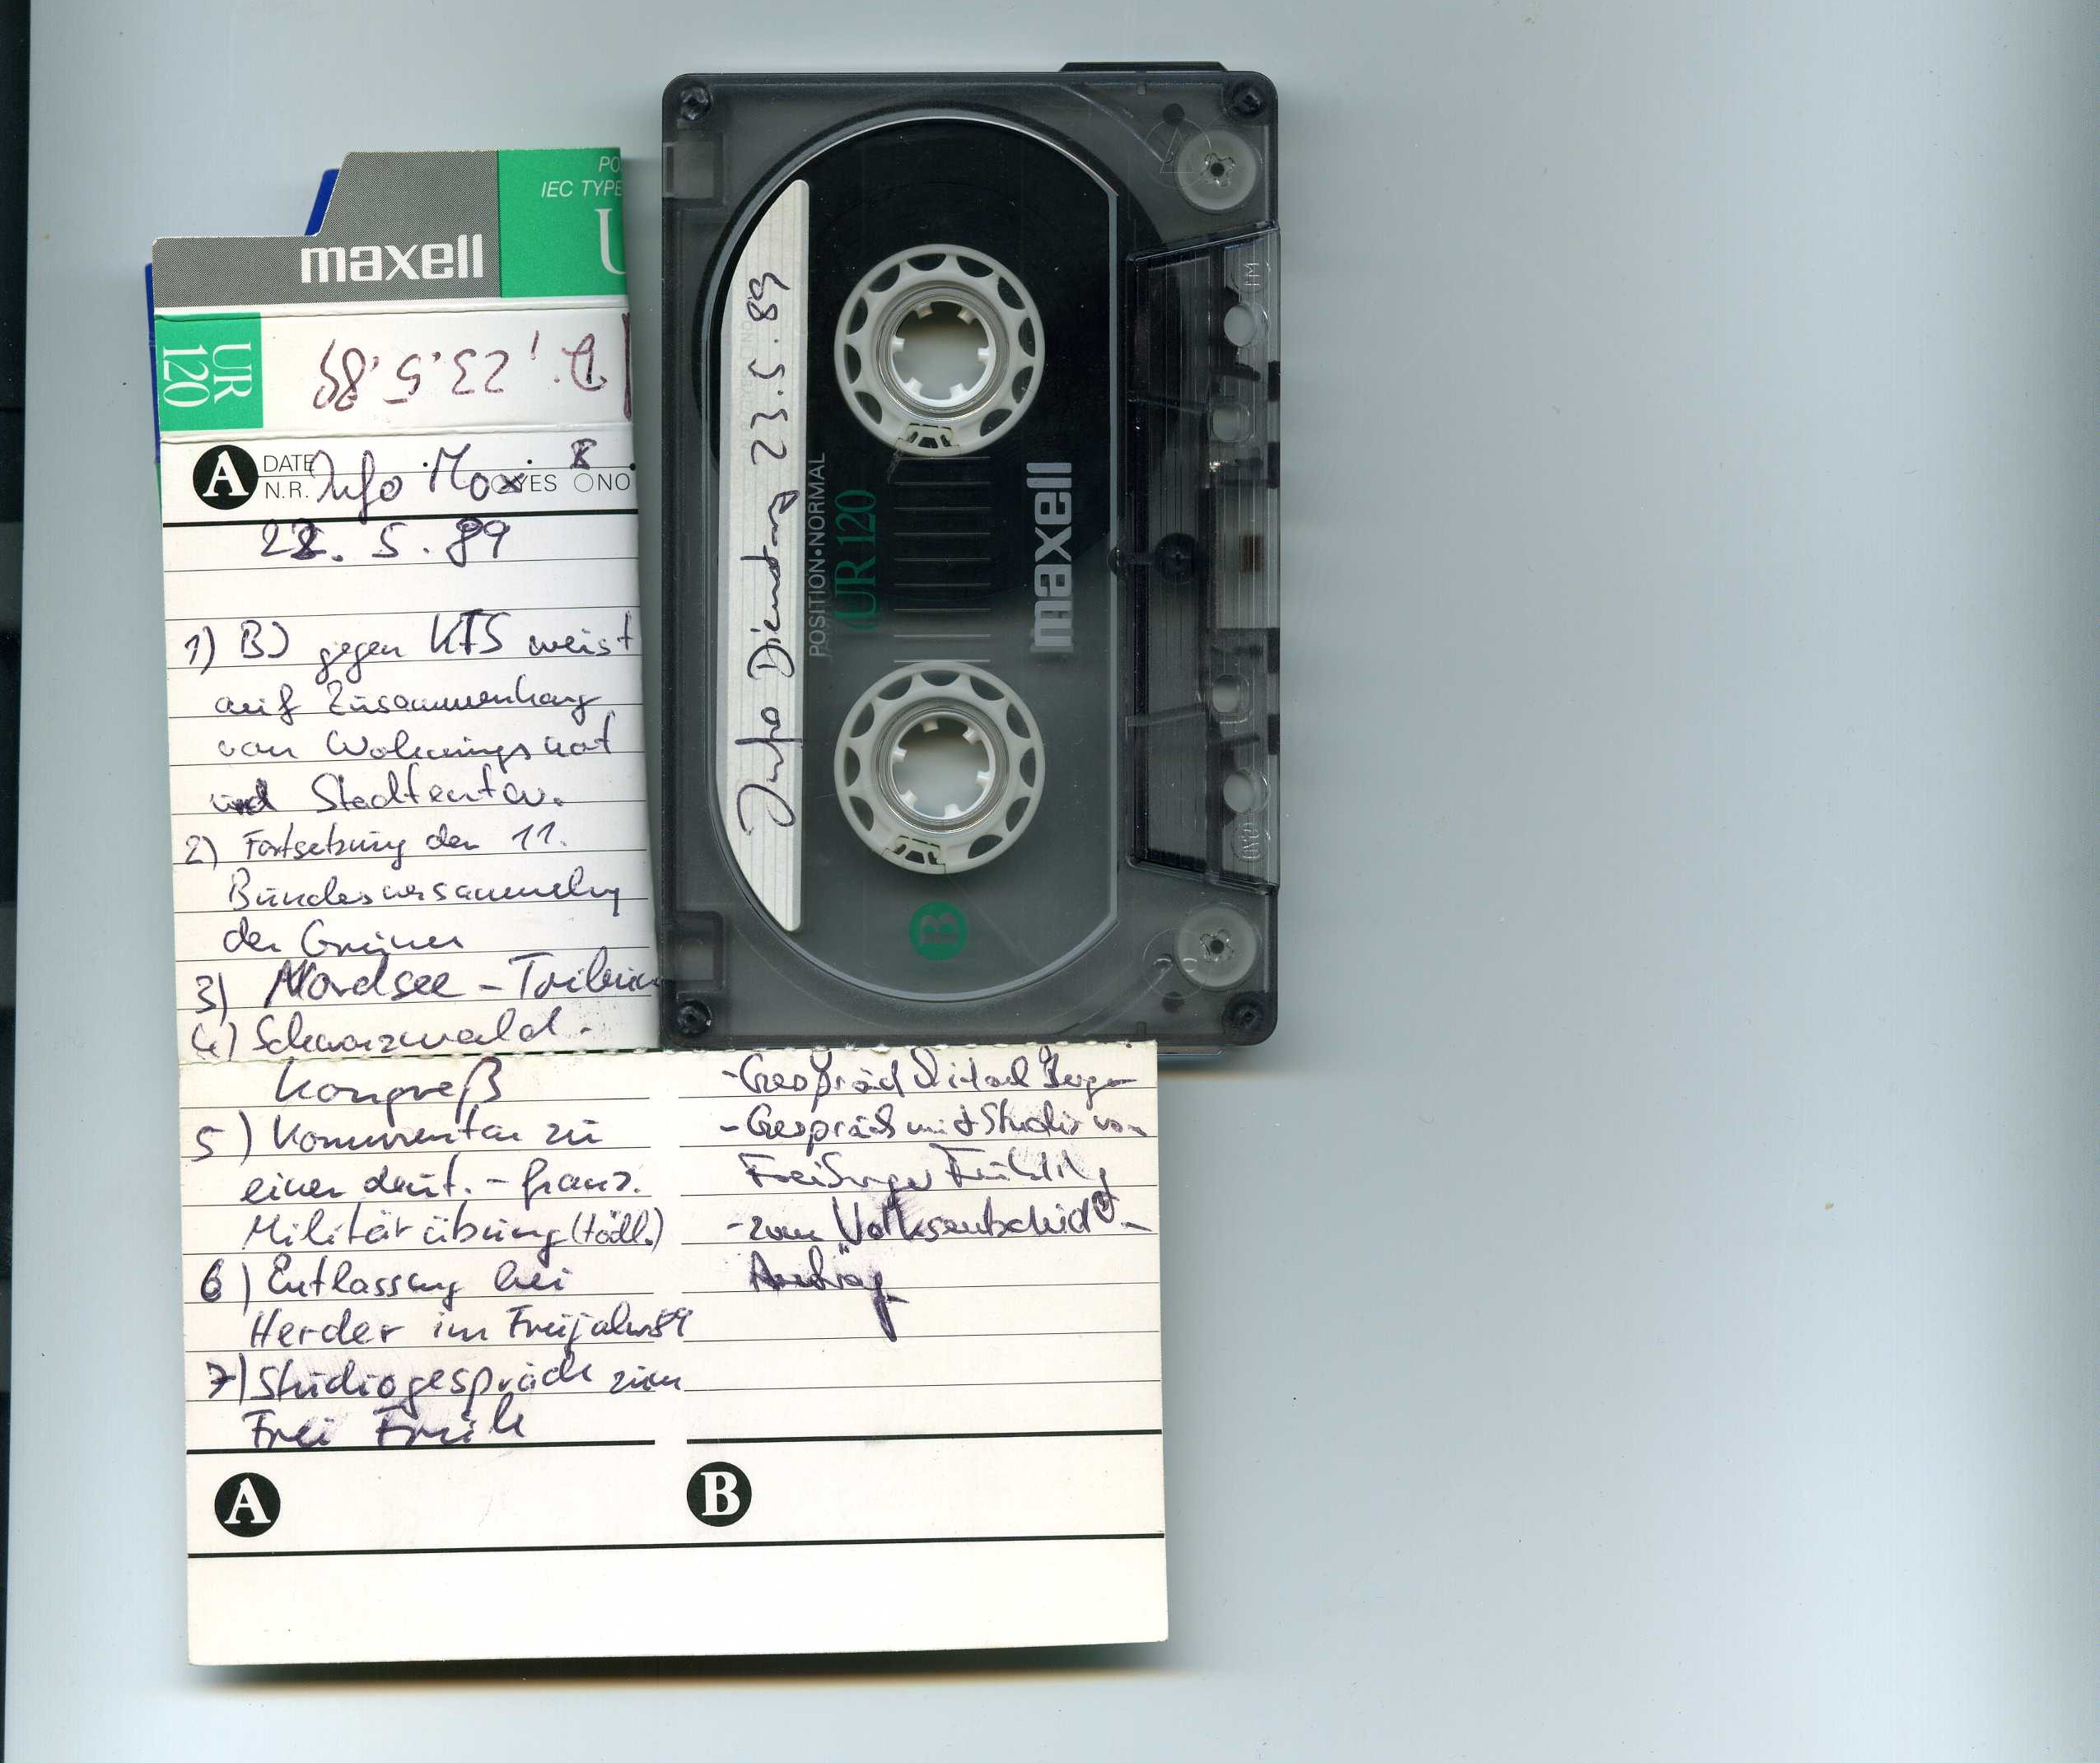 PO
IEC TYPE
U
maxell
UR
120
D. 23.5.89
A DATE
N.R. YES NO
Info Mo
22. 5. 89
1) BI gegen KTS weist
auf Zusammenhang
von Wohnungsnot
und Stadtentw.
2) Fortsetzung der 11.
Bundesversammlung
der Grünen
3) Nordsee - Tribun
4) Schwarzwald -
Kongreß
5) Kommentar zu
einer deut. - franz.
Militärübung (tödl.)
6) Entlassung bei
Herder im Freijahr 89
7) Studiogespräch zum
Frei Früh
A
- Gespräch
- Gespräch mit Studis von
Freiburger Frühling
- zum Volksentscheid -
Antrag
B
Info Dienstag 23.5.89
POSITION•NORMAL
UR 120
maxell
B